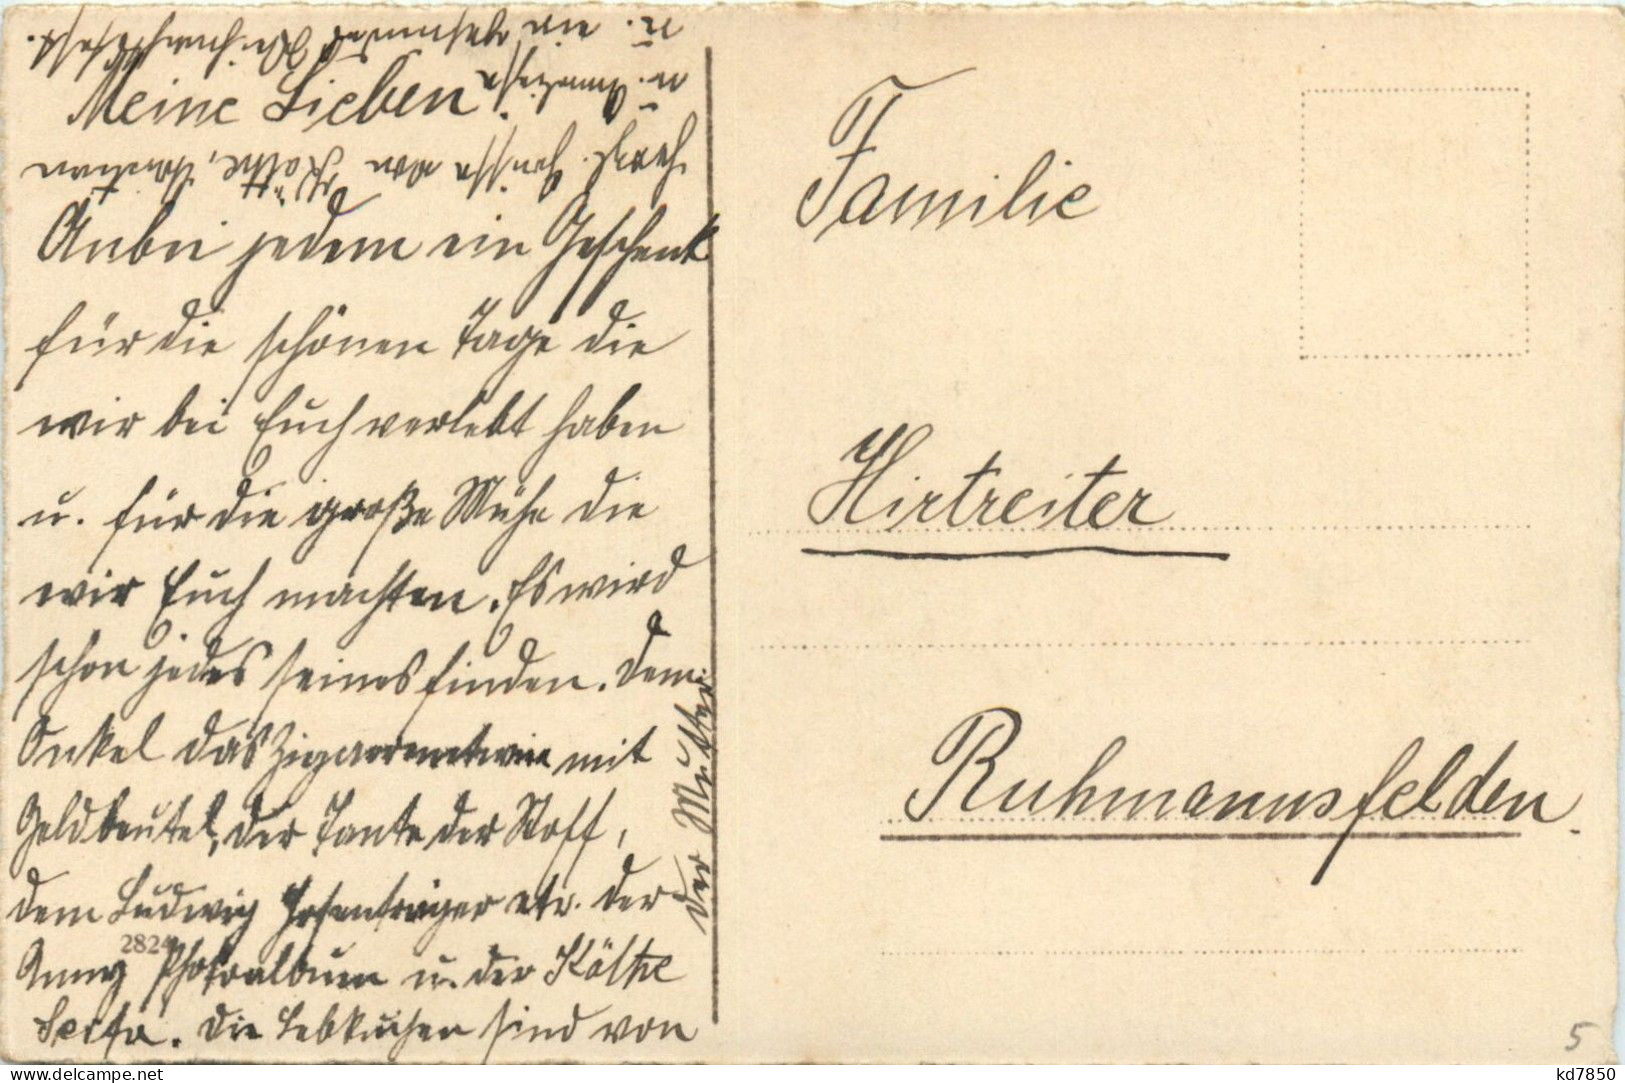 Meine Lieben!
Anbei jedem ein Geschenk
für die schönen Tage die
wir bei Euch verlebt haben
u. für die große Mühe die
wir Euch machten. Es wird
schon jedes seines finden. Dem
Onkel das mit
Geldbeutel, der Tante der Stoff,
dem Ludwig Hosenträger etc. der
Anny Photoalbum u. der Käthe
Seife. Die Lebkuchen sind von
der Mutter
Herzl. Grüsse von Käthe,
u. Anneliese
u. ein gesundes Weihnachtsfest.
Familie
Hirtreiter
Ruhmannsfelden.
2824
5
www.delcampe.net
kd7850